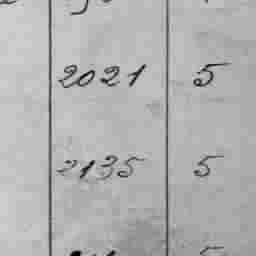 2021 5
2135 5